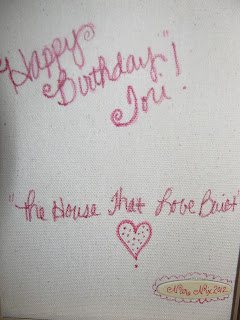 "Happy
Birthday"
Tori!
"The House That Love Built"